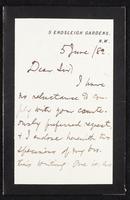 5 ENDSLEIGH GARDENS,
N.W.
5 June / 82
Dear Sir,
I have
no reluctance to com-
ply with your courte-
ously preferred request
& I enclose herewith two
specimens of my bro.
this writing One is his